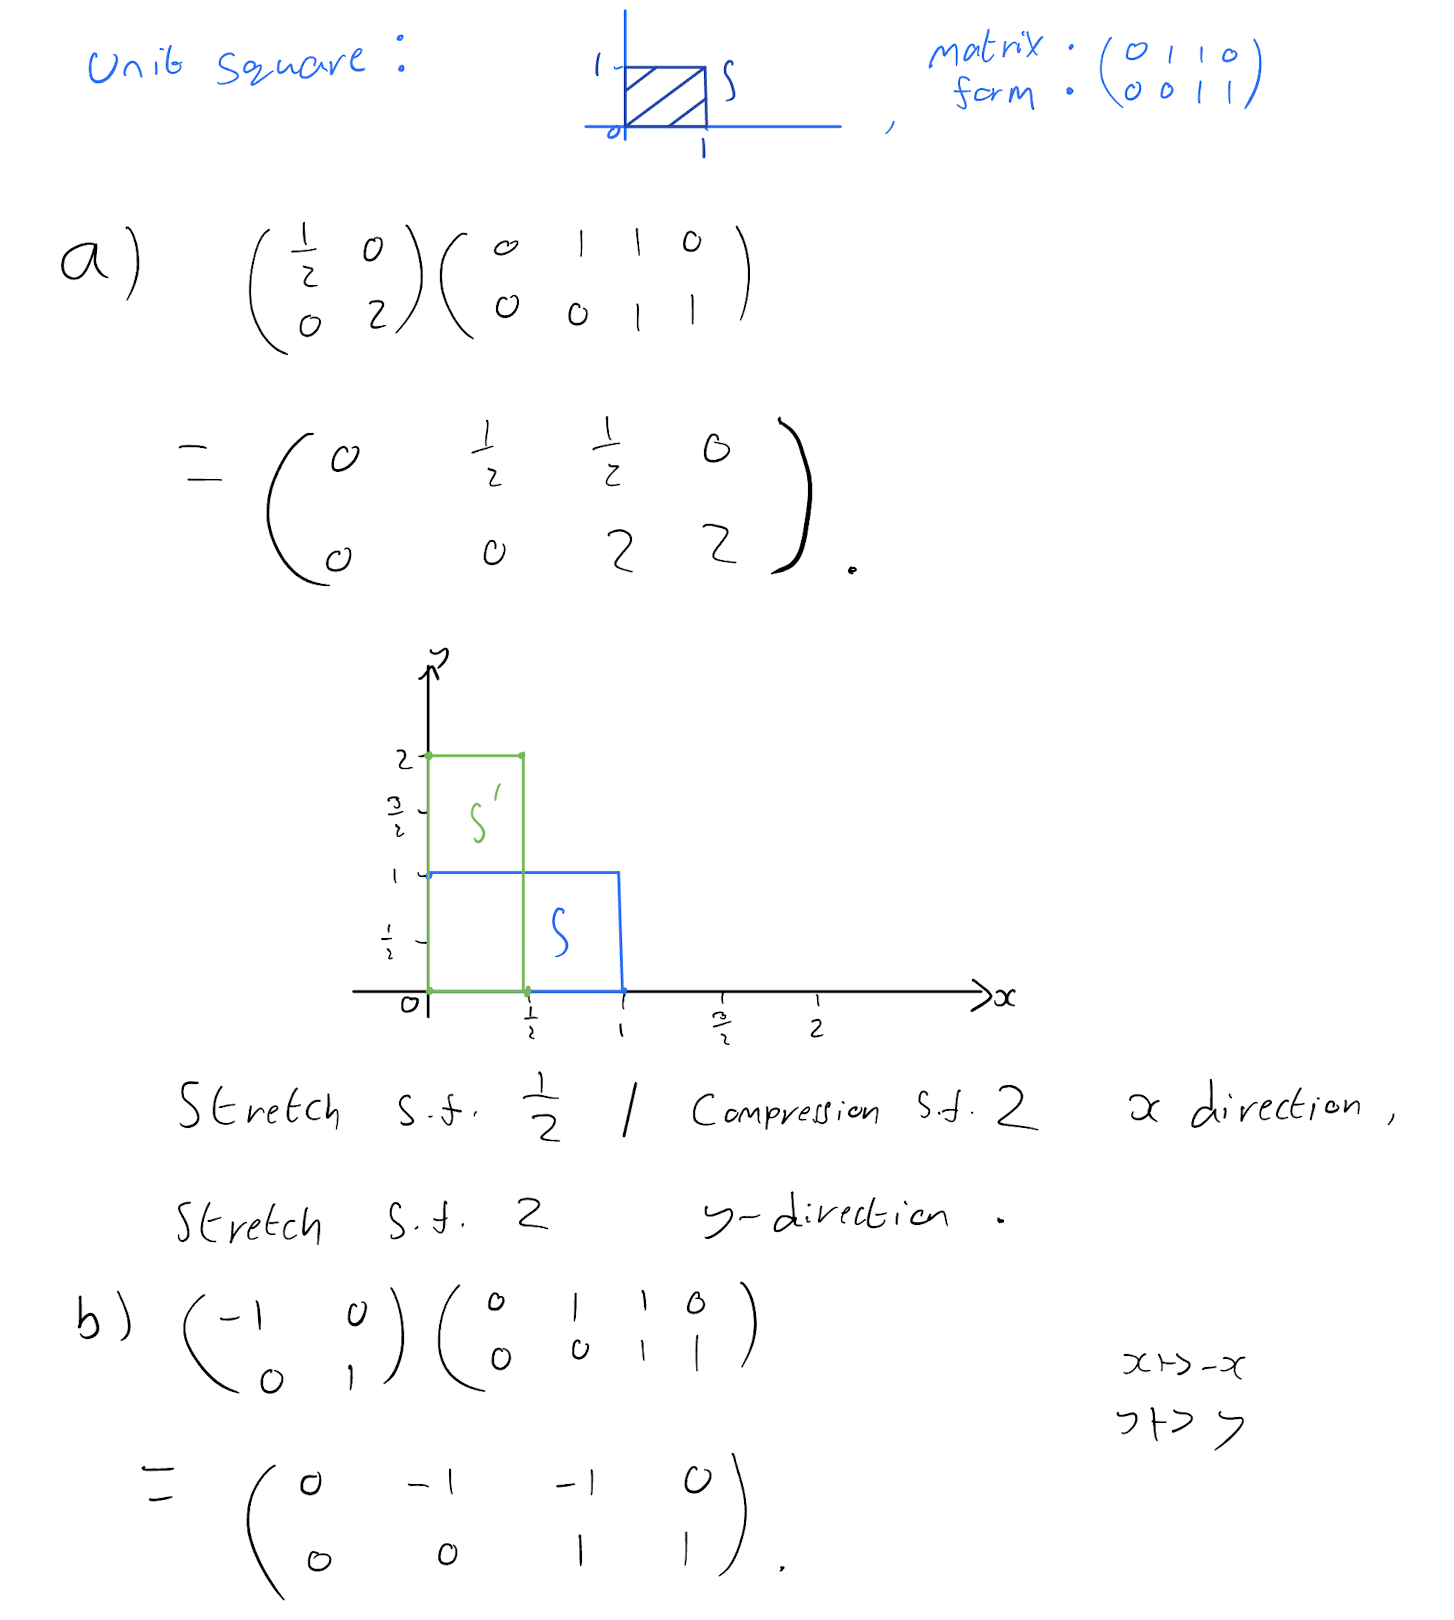 Unit Square: 1 0 1 S , matrix form : (0 1 1 0
0 0 1 1)
a) (1/2 0
0 2) (0 1 1 0
0 0 1 1)
= (0 1/2 1/2 0
0 0 2 2).
y
2
3/2
S'
1
S
1/2
0 1/2 1 3/2 2 x
Stretch s.f. 1/2 / Compression s.f. 2 x direction,
Stretch s.f. 2 y-direction.
b) (-1 0
0 1) (0 1 1 0
0 0 1 1)
x↦-x
y↦y
= (0 -1 -1 0
0 0 1 1).